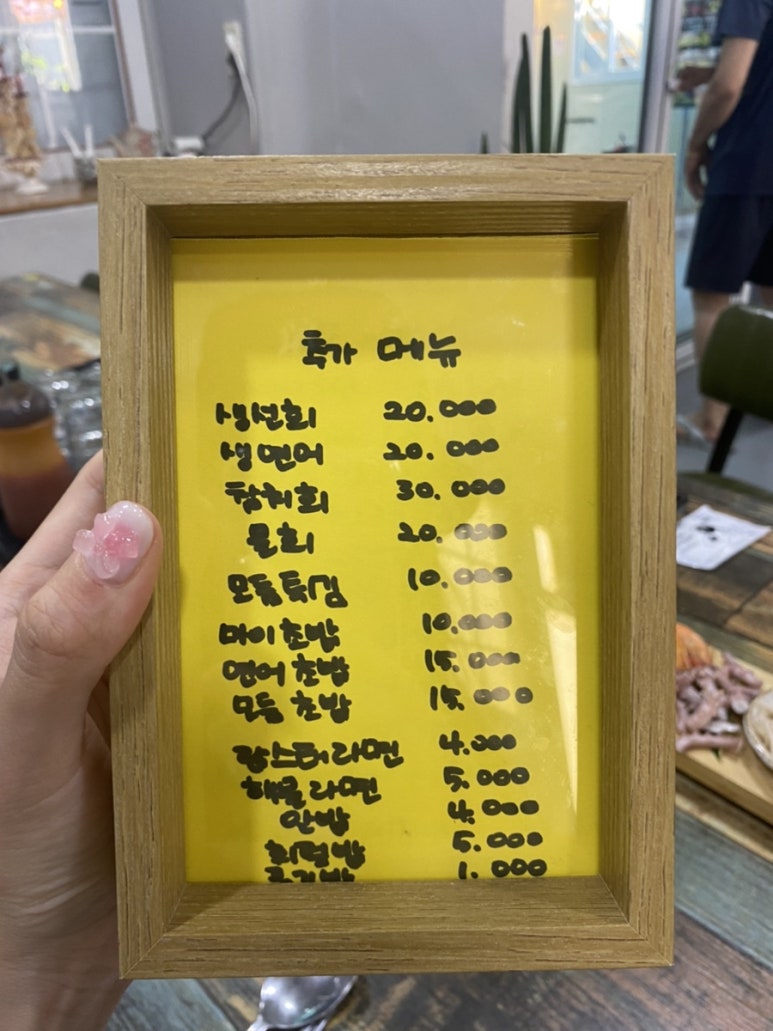 추가 메뉴
생선회 20.000
생연어 20.000
참치회 30.000
물회 20.000
모듬튀김 10.000
마이초밥 10.000
연어초밥 15.000
모듬초밥 15.000
랍스터라면 4.000
해물라면 5.000
알밥 4.000
회덮밥 5.000
공기밥 1.000